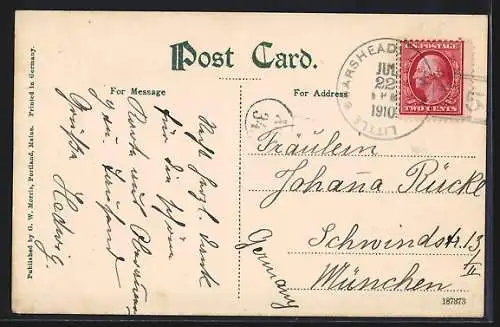 Post Card.
For Message
For Address
Published by G. W. Morris, Portland, Maine. Printed in Germany.
Recht herzl. Dank
für die schöne
Karte und
Grüße
Hedwig.
A
34
LITTLE MARSHEAD
JUL
22
1910
U.S. POSTAGE
TWO CENTS
5
Fräulein
Johaña Rücke
Schwindstr. 13/II
München
Germany
187873